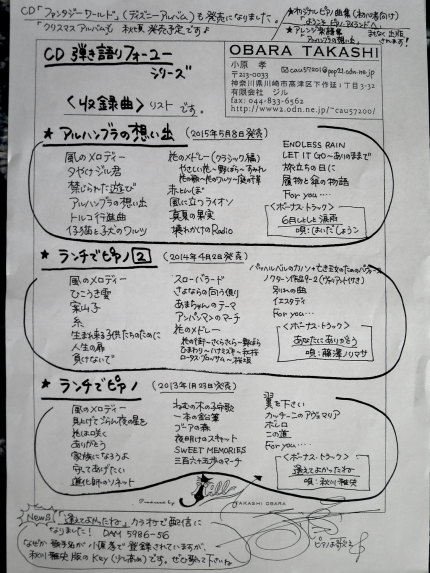 CD「ファンタジーワールド」(ディズニーアルバム)も発売になりました。
「クリスマスアルバム」も 秋頃 発売予定です♪
★オリジナルピアノ曲集(初心者向け)
「ようこそ ピアノ・アイランドへ」
★アレンジ楽譜集
「アルハンブラの想い出」
まもなく出版されます!
CD 弾き語りフォーユー
シリーズ
<収録曲>リストです。
OBARA TAKASHI
小原 孝
〒213-0033
cau57201@pop21.odn.ne.jp
神奈川県川崎市高津区下作延1丁目3-32
有限会社 ジル
fax: 044-833-6562
http://www2.odn.ne.jp/~cau57200/
★ アルハンブラの想い出
(2015年5月8日発売)
風のメロディー
夕やけジル君
禁じられた遊び
アルハンブラの想い出
トルコ行進曲
仔猫と子犬のワルツ
花のメドレー(クラシック編)
やさしい花〜野ばら〜すみれ
花の歌〜花のワルツ〜庭の千草
赤とんぼ
風に立つライオン
真夏の果実
壊れかけのRadio
ENDLESS RAIN
LET IT GO〜ありのままで
旅立ちの日に
履物と傘の物語
For you....
<ボーナス・トラック>
6月しとしと通雨
唄:はいだしょうこ
★ ランチでピアノ 2
(2014年4月2日発売)
風のメロディー
ひこうき雲
案山子
糸
生まれ来る子供たちのために
人生の扉
負けないで
スローバラード
さよならの向う側
あまちゃんのテーマ
アンパンマンのマーチ
花のメドレー
花の街〜さくらさくら〜野ばら
ひまわり〜ハナミズキ〜秋桜
ロータス・ブロッサム〜桜坂
パッヘルベルのカノン+亡き王女のためのパヴァーヌ
ノクターン作品9-2(ヴァリアント付き)
別れの曲
イエスタデイ
For you...
<ボーナス・トラック>
あなたにありがとう
唄:藤澤ノリマサ
★ ランチでピアノ
(2013年1月23日発売)
風のメロディー
見上げてごらん夜の星を
花は咲く
ありがとう
家族になろうよ
守ってあげたい
道化師のソネット
ねむの木の子守歌
一本の鉛筆
ゴーアの森
夜明けのスキャット
SWEET MEMORIES
三百六十五歩のマーチ
翼を下さい
カッチーニのアヴェマリア
ボレロ
この道
For you....
<ボーナス・トラック>
逢えてよかったね
唄:秋川雅史
Produced by
Jill
TAKASHI OBARA
News
「逢えてよかったね」カラオケで配信に
なりました! DAM 5986-56
(なぜか歌手名が小原孝で登録されていますが、
秋川雅史版のKey(少し高め)です。ぜひ歌って下さいね
ピアノよ歌え